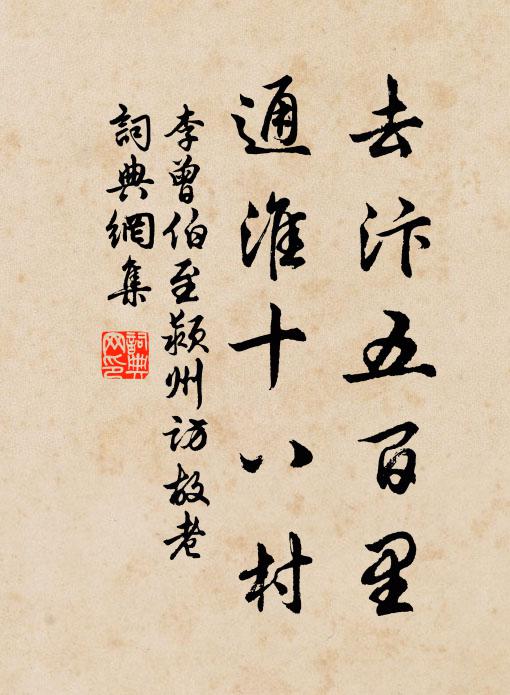 去汴五百里
通淮十八村
李曾伯至颍州访故老
詞典網集
詞典网印